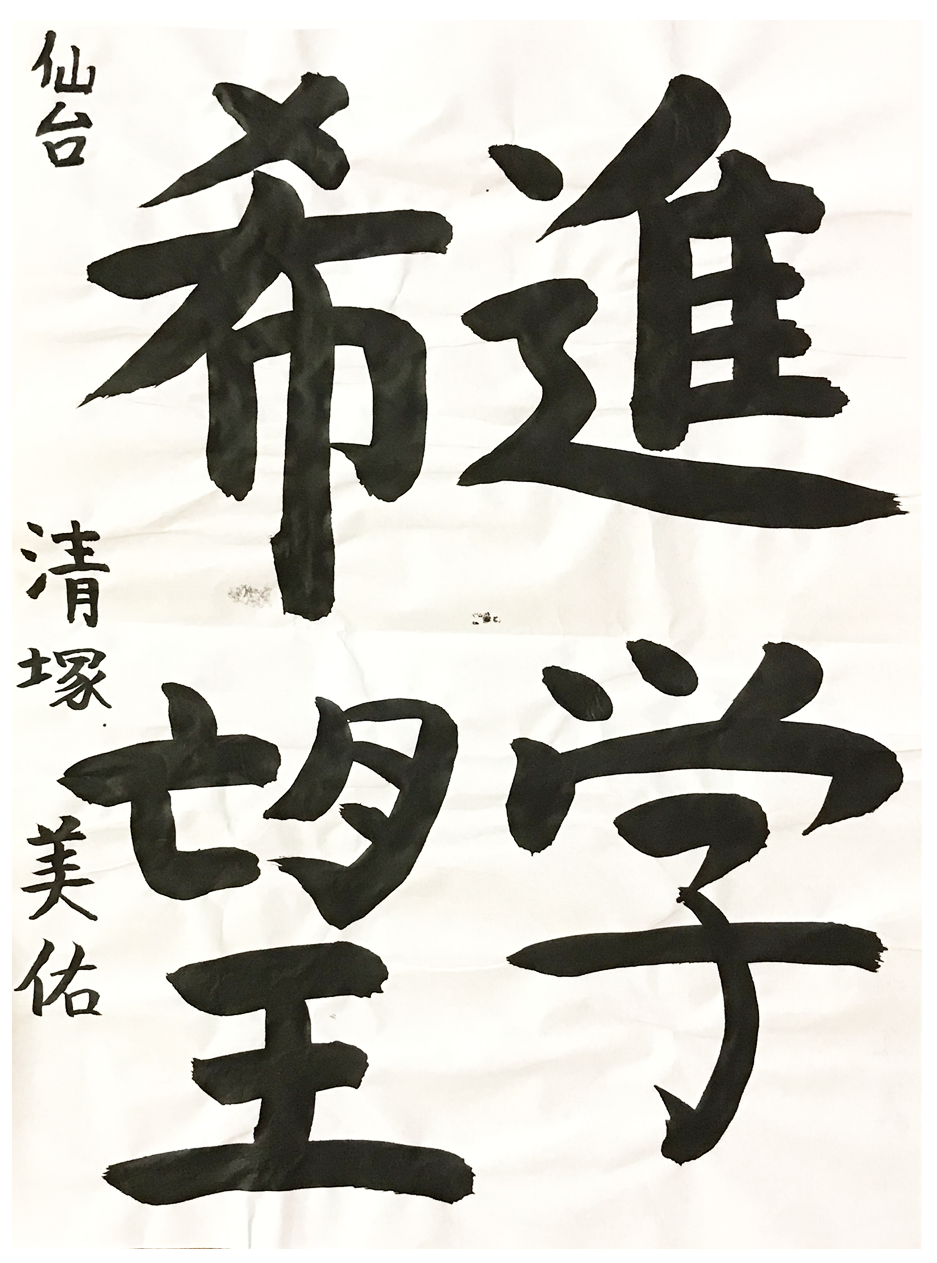 進学
希望
仙台 清塚 美佑